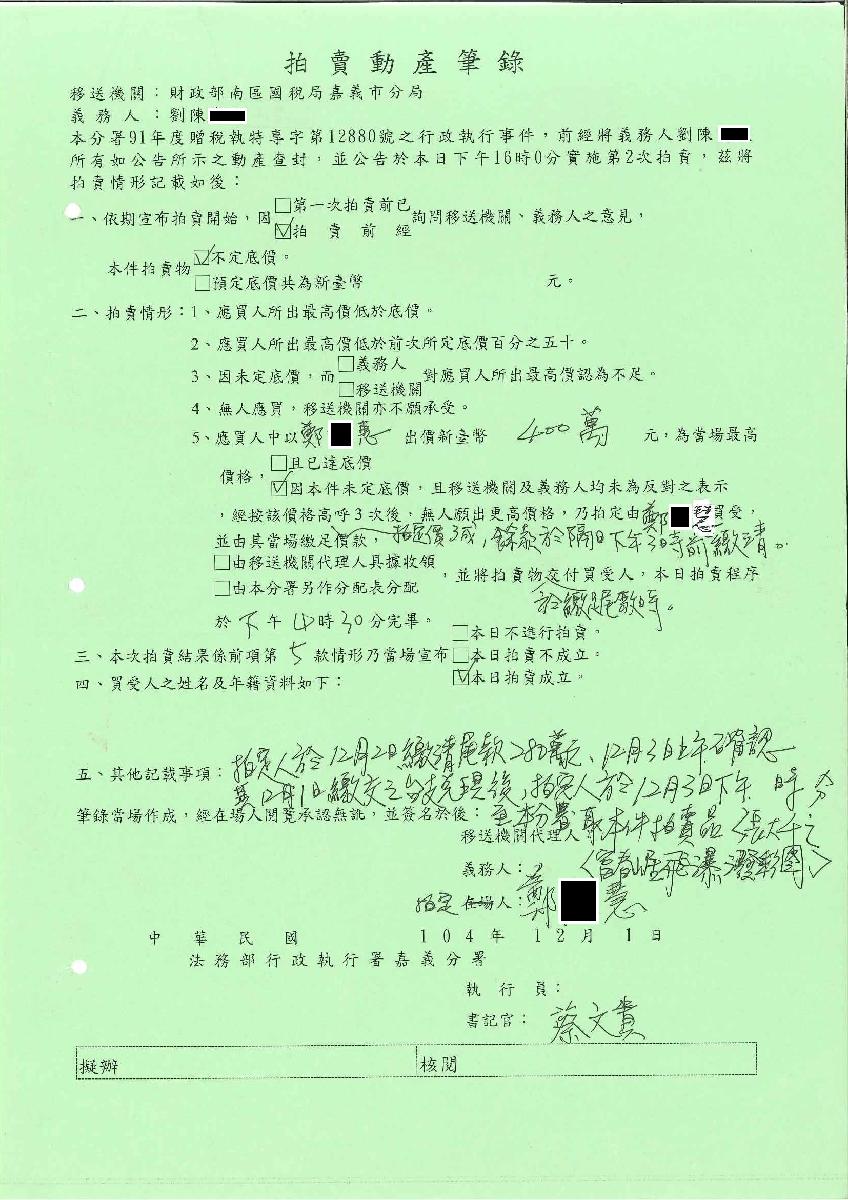 拍賣動產筆錄
移送機關：財政部南區國稅局嘉義市分局
義務人：劉陳
本分署91年度贈稅執特專字第12880號之行政執行事件，前經將義務人劉陳
所有如公告所示之動產查封，並公告於本日下午16時0分實施第2次拍賣，茲將
拍賣情形記載如後：
一、依期宣布拍賣開始，因□第一次拍賣前已
☑拍賣前經
詢問移送機關、義務人之意見，
本件拍賣物☑不定底價。
□預定底價共為新臺幣 元。
二、拍賣情形：1、應買人所出最高價低於底價。
2、應買人所出最高價低於前次所定底價百分之五十。
3、因未定底價，而□義務人
□移送機關
對應買人所出最高價認為不足。
4、無人應買，移送機關亦不願承受。
5、應買人中以鄭 慧 出價新臺幣 400萬 元，為當場最高
價格，□且已達底價
☑因本件未定底價，且移送機關及義務人均未為反對之表示
，經按該價格高呼3次後，無人願出更高價格，乃拍定由鄭 慧買受，
並由其當場繳足價款，拍定價3成，餘款於隔日下午3時前繳清。
□由移送機關代理人具據收領
□由本分署另作分配表分配
，並將拍賣物交付買受人，本日拍賣程序
於繳足尾款時。
於下午4時30分完畢。
□本日不進行拍賣。
三、本次拍賣結果係前項第5款情形乃當場宣布□本日拍賣不成立。
☑本日拍賣成立。
四、買受人之姓名及年籍資料如下：
拍定人於12月2日繳清尾款280萬元、12月3日上午確認
五、其他記載事項：
其12月1日繳交之支兌現後，拍定人於12月3日下午 時 分
筆錄當場作成，經在場人閱覽承認無訛，並簽名於後：
至本分署取本件拍賣品〈張大千之
移送機關代理人
〈富春 飛瀑潑彩圖〉
義務人：
拍定在場人：鄭 慧
中華民國 104年12月1日
法務部行政執行署嘉義分署
執行員：
書記官：蔡文貴
擬辦
核閱